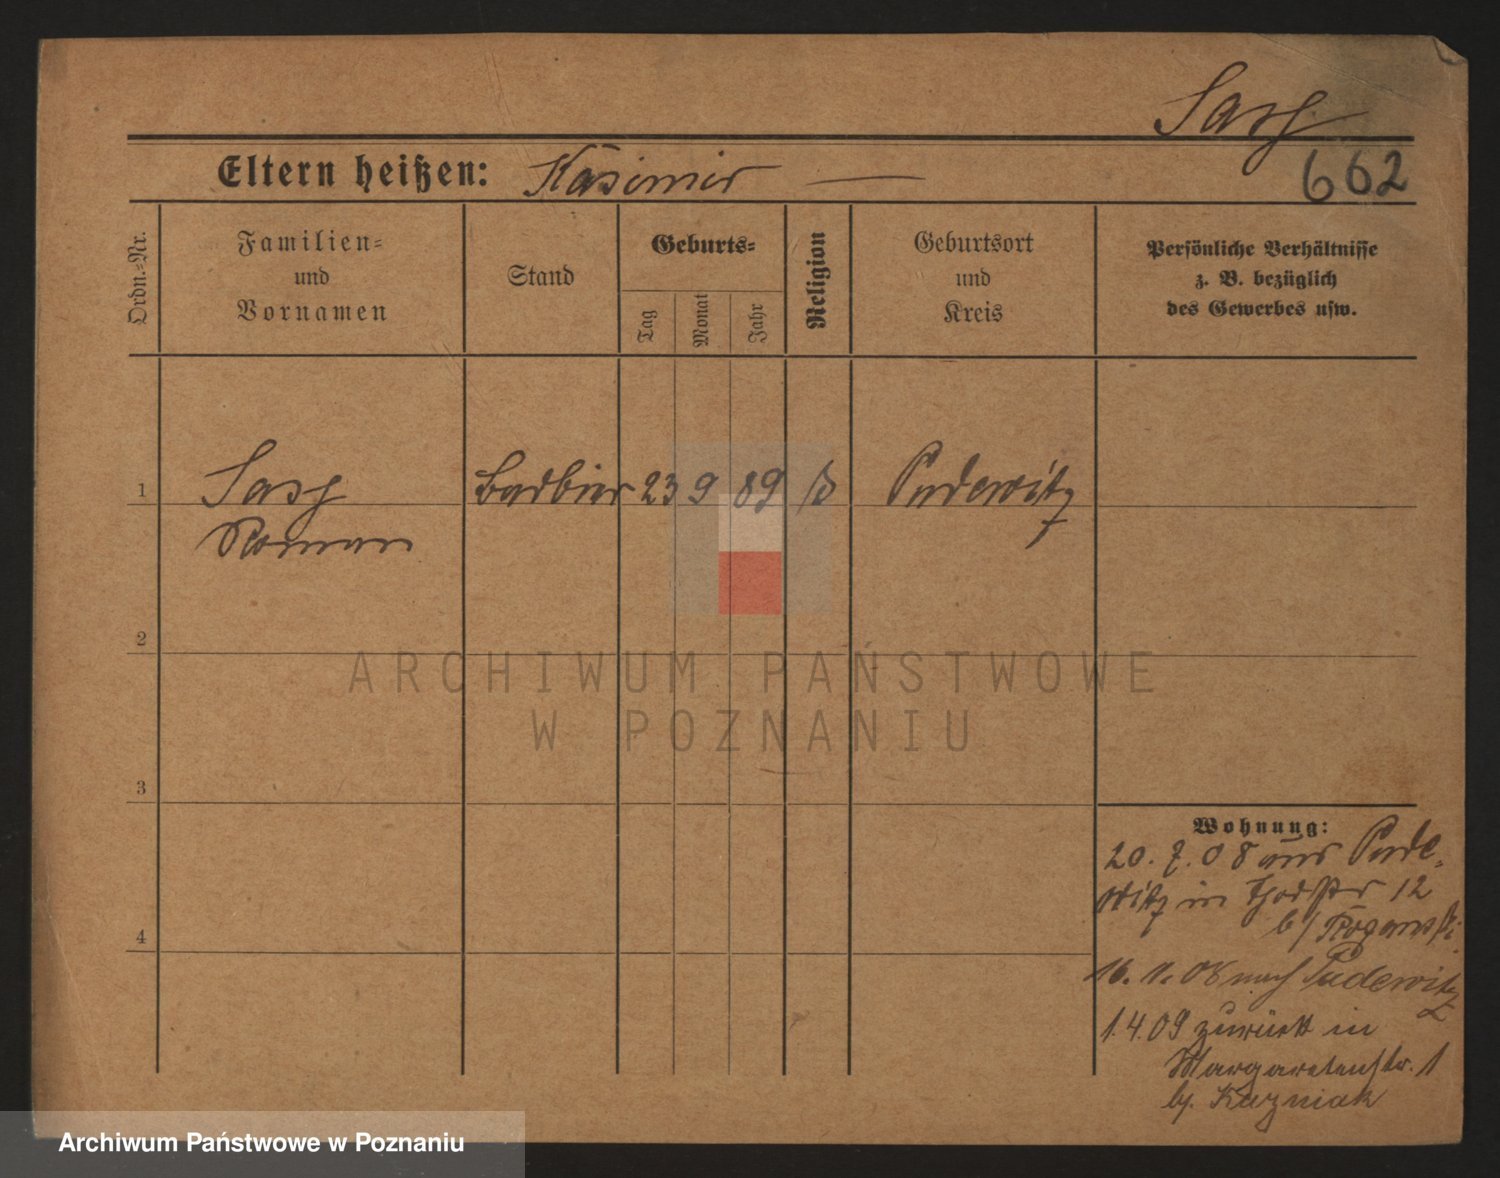 Sasz
Eltern heißen: Kasimir —
662
Ordn.=Nr.
Familien=
und
Vornamen
Stand
Geburts=
Tag
Monat
Jahr
Religion
Geburtsort
und
Kreis
Persönliche Verhältnisse
z. B. bezüglich
des Gewerbes usw.
1
Sasz
Roman
Barbier
23
9
89
Pudewitz
2
3
4
ARCHIWUM PAŃSTWOWE
W POZNANIU
Wohnung:
20. 7. 08 aus Pude-
witz in 12
b/
16. 08 nach Pudewitz
1.4.09 zurück in
Margaretenstr. 1
b/. Kuzniak
Archiwum Państwowe w Poznaniu